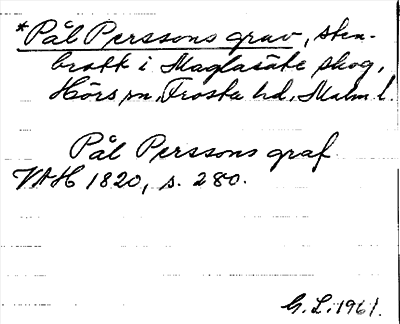 *Pål Perssons grav, sten-
brott i Maglasäte skog,
Hörs sn, Frosta hd, Malm. l.
Pål Perssons graf
VAH 1820, s. 280.
G. L. 1961.